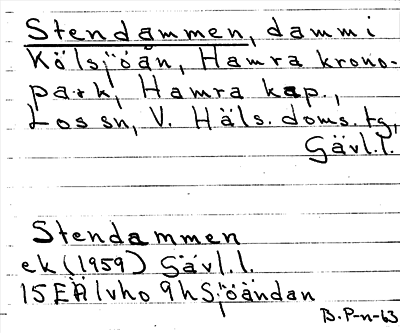 Stendammen, damm i
Kölsjöån, Hamra krono-
park, Hamra kap.,
Los sn, V. Häls. doms. tg,
Gävl.l.
Stendammen
ek (1959) Gävl.l.
15E Älvho 9h Sjöändan
B.P-n-63